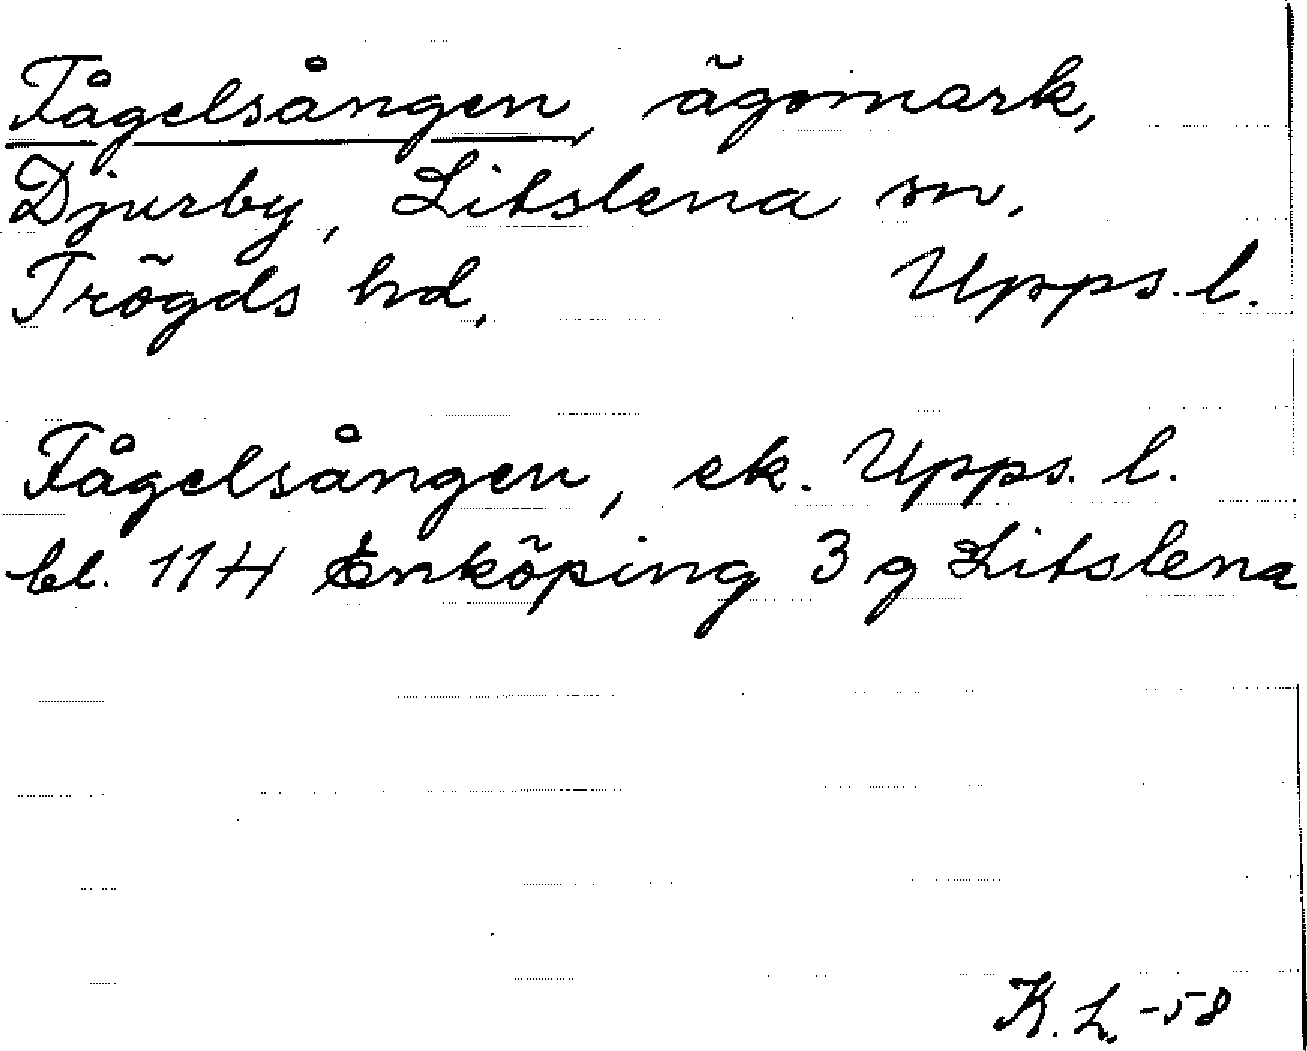 Fågelsången, ägomark,
Djurby, Litslena sn.
Trögds hd, Upps. l.
Fågelsången, ek. Upps. l.
bl. 11H Enköping 3 g Litslena
K. L. -58